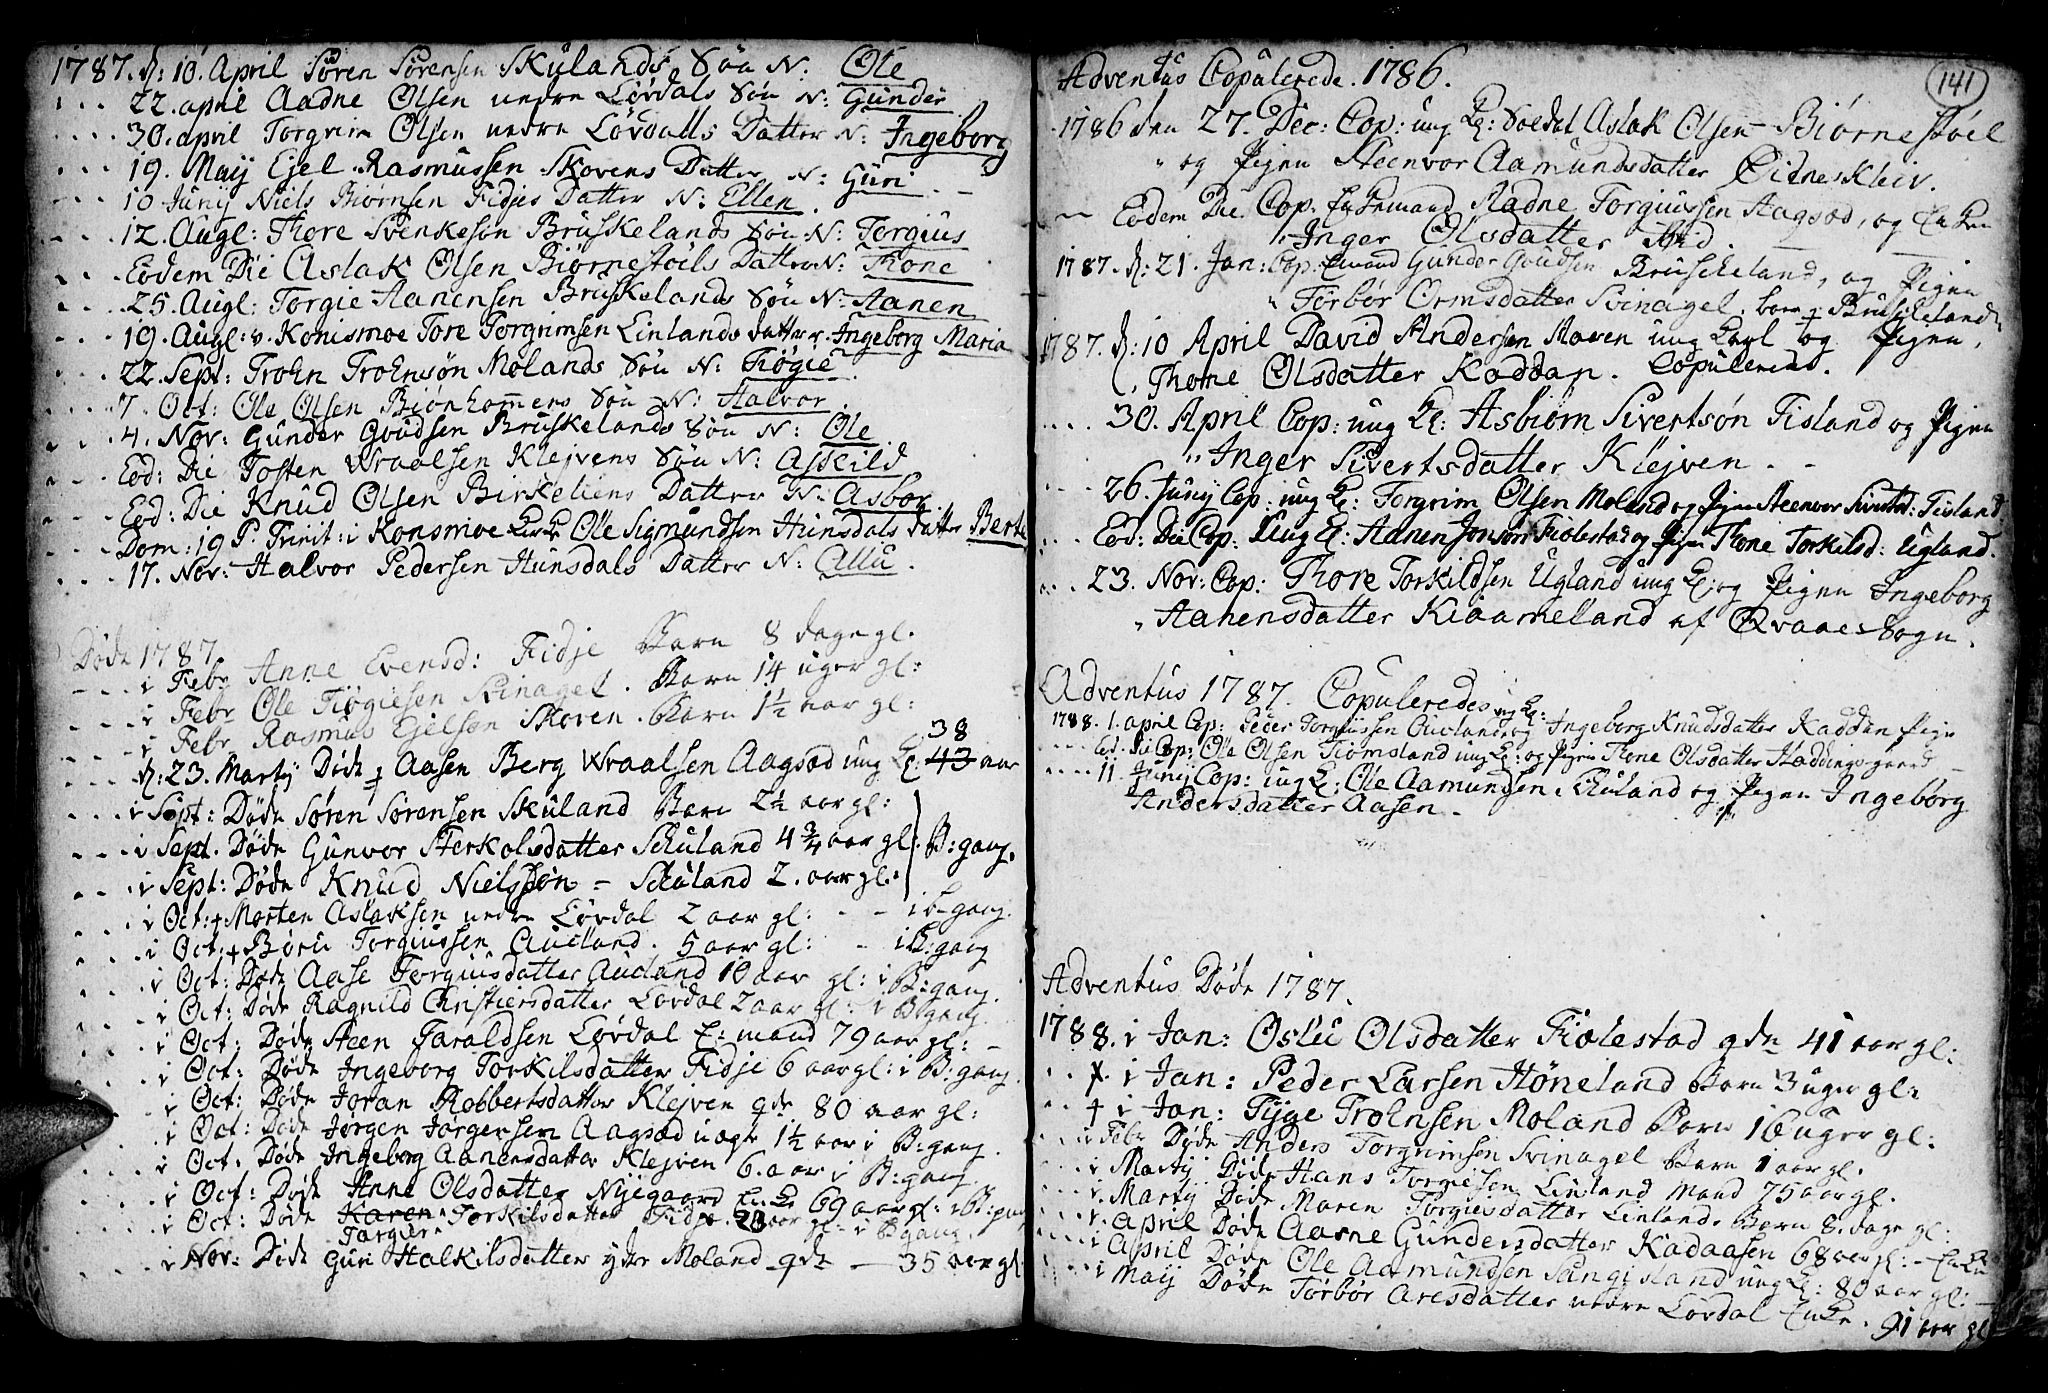 1787. d: 10. April Søren Sørensen Skülands Søn N: Ole
22. april Aadne Olsen nedre Lövdals Søn N: Gunder
30. april Torgrim Olsen nedre Lövdalls Datter N: Ingeborg
19. Maij Ejel Rasmussen Skovens Datter N: Guri
10 Junij Niels Biørnsen Fidjes Datter N: Ellen.
12. Augl: Thore Svenkesøn Brüskelands Søn N: Torgius
Eodem Die Aslak Olsen Biørnestøils Datter N: Thone
25. Augl: Torgie Aanensen Brüskelands Søn N: Aanen
19. Augl: v. Konismoe Tore Torgrimsen Linlands datter N. Ingeborg Maria
22. Sept: Trohn Trohnsøn Molands Søn N: Tiøgie
7. Oct: Ole Olsen Biønhommers Søn N: Halvor.
4. Nov: Gunder Goudsen Brüskelands Søn N: Ole
Eod: Die Tosten Wraalsen Klejvens Søn N: Askild
Eod: Die Knud Olsen Birkeliens Datter N: Asbor
Dom: 19 P. Trinit: i Konsmoe Ole Sigmundsen Hunsdals datter Berte
17. Nov: Halvor Pedersen Hunsdals Datter N: Allu.
Døde 1787
i Febr Anne Evensd: Fidje Barn 8 dage gl.
i Febr Ole Tiøgiesen Svinagel. Barn 14 uger gl:
i Febr Rasmus Ejelsen Skoven. Barn 1½ aar gl:
38
d: 23. Martij Døde i Aasen Berg Wraalsen Aagsød ung K: 43 aar
i Sept: Døde Søren Sørensen Sküland Barn 2½ aar gl:
i Sept. Døde Gunvor Sterkolsdatter Schuland 4¾ aar gl: B: gang.
i Sept: Døde Knud Nielssøn - Schuland 2. aar gl:
i Oct: + Morten Aslaksen nedre Lövdal 2 aar gl: - - i b-gang.
i Oct: + Børu Torgiussen Aucland. 5 aar gl: - i B: gang
i Oct: Døde Aase Torguisdatter Aucland 10 aar gl: i B: gang.
i Oct: Døde Ragnild Christiersdatter Lovdal 2 aar gl: i B: gang.
i Oct: Døde Steen Taraldsen Lövdal E: mand 79 aar gl: -
i Oct: Døde Ingeborg Torkilsdatter Fidje 6 aar gl: i B: gang.
i Oct: Døde Joran Robbertsdatter Klejven gde 80 aar gl:
i Oct: Døde Jørgen Jørgensen Aagsød uægte 1½ aar i B: gang.
i Oct: Døde Ingeborg Aanensdatter Klejven 6. aar i B: gang.
i Oct: Døde Anne Olsdatter Nyegaard E: K 69 aar gl: i B: gang
i Oct: Døde Karen Torkilsdatter Fidje. aar gl: i B gang.
Torgier
i Nov: Døde Guri Halkilsdatter ydre Moland gde - 35 aar gl
141
Adventus Copulerede. 1786.
1786 den 27. Dec: Cop: ung K: Soldat Aslak Olsen - Biørnestøil
og Pigen Steenvor Aamundsdatter Øidneskleiv.
Eodem Die Cop. Enkemand Aadne Torguissen Aagsød, og Enken
Inger Olsdatter ibid.
1787. d: 21. Jan: Cop. Emand Gunder Goudsen Bruskeland, og Pigen
Torbor Ormsdatter Svinagel. Bruskeland
1787. d: 10 April David Andersen Roven ung Karl og Pigen,
Thone Olsdatter Kaddan. Copulered.
30. April Cop: ung K: Asbiørn Sivertsøn Tisland og Pigen
Inger Sivertsdatter Klejven. -
26. Junij Cop: ung K: Torgrim Olsen Moland og Pigen Steenvor Sivertsd: Tisland.
Eod: Die Cop: Ung K: Aanen Jonsøn Fiolestad og Pigen Thone Torkilsd: Ugland.
23. Nov: Cop: Thore Torkildsen Ugland ung K: og Pigen Ingeborg
Aanensdatter Kiaameland af Qvaae Sogn.
Adventus 1787. Copulerede
ung K:
1788. 1. april Cop: Peder Torguissen Oucland og Ingeborg Knudsdatter Kaddan Pige
Eod. Die Cop: Ole Olsen Tiømsland ung K: og Pigen Thone Olsdatter Haddingsgaard
11. Junij Cop: ung K: Ole Aamundsen Schuland og Pigen Ingebörg
Andersdatter Aasen. -
Adventus Døde 1787.
1788. i Jan: Oslu Olsdatter Fiolestad gde 41 aar gl:
i Jan: Peder Larsen Høneland Barn 3 uger gl:
+ i Jan: Tyge Trohnsen Moland Barn 16 uger gl:
i Febr Døde Anders Torgrimsen Svinagel Barn 1 aar gl.
i Martij Døde Hans Torgiesen Linland Mand 75 aar gl.
i Martij Døde Maren Torgiesdatter Linlands Barn 8. dage gl:
i April Døde Aasne Gundersdatter Kadaasen 68 aar gl: - Enke
i April Døde Ole Aamundsen Sangisland ung K: 80 aar gl: -
i Maij Døde Torbör Aresdatter nedre Lovdal Enke. 91 aar gl